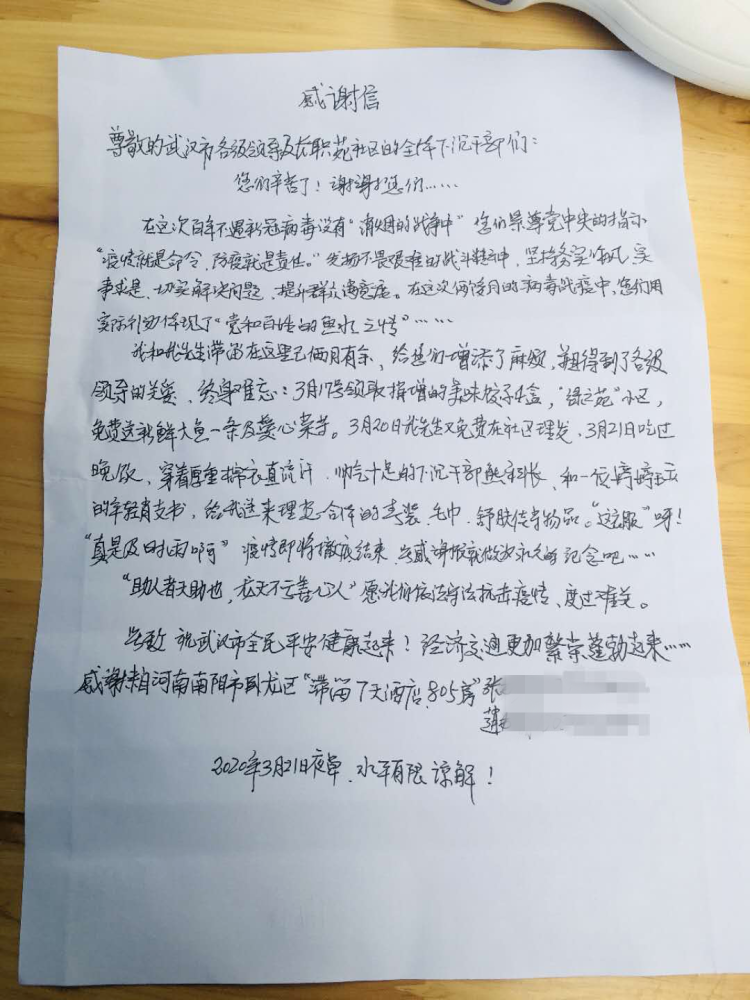 感谢信
尊敬的武汉市各级领导及长职苑社区的全体下沉干部们：
您们辛苦了！谢谢您们……
在这次百年不遇新冠病毒没有"消烟的战争中"您们景尊党中央的指示
"疫情就是命令，防疫就是责任。"发扬不畏艰难的战斗精神，坚持务实作风，实
事求是，切实解决问题，提升群众满意度。在这次何俸月的病毒战疫中，您们用
实际行动体现了"党和百姓的鱼水之情"……
我和我先生滞留在这里已俩月有余，给您们增添了麻烦，并得到了各级
领导的关爱，终身难忘：3月17号领取捐增的美味饺子4盒，"绿之苑"小区，
免费送新鲜大鱼一条及爱心菜等。3月20日我先生又免费在社区理发，3月21日吃过
晚饭，穿着厚重棉衣直流汗，帅气十足的下沉干部熊科长，和一位婷婷玉立
的年轻肖支书，给我送来理想合体的春装，毛巾，舒肤佳等物品。"这衣服"呀！
"真是及时雨啊"疫情即将撤底结束，当感谢报就做为永久的纪念吧……
"助人者天助也，老天不亏善心人"愿我们依法守法抗击疫情、度过难关。
此致 祝武汉市全民平安健康起来！经济交通更加繁荣蓬勃起来……
感谢来自河南南阳市卧龙区"滞留7天酒店，805房"张
赵
2020年3月21日夜草，水平有限 谅解！